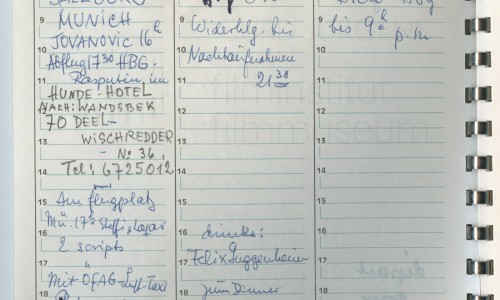 MUNICH
JOVANOVIC 16h
Abflug 17 30 HBG.
Rasputin im
HUNDE-HOTEL
NACH: WANDSBEK
70 DEEL-
WISCHREDDER
- No 36,
Tel: 6725012
Am flugplatz
Mü. 17h Steffi
2 scripts
Mit ÖFAG Luft-Taxi
9
10
11
12
13
14
15
16
17
18
Widerhlg. bis
Nachtaufnahmen
21 38
drinks:
Felix Guggenheim
zum Dinner
9
10
11
12
13
14
15
16
17
18
bis 9h
p.m
9
10
11
12
13
14
15
16
17
18